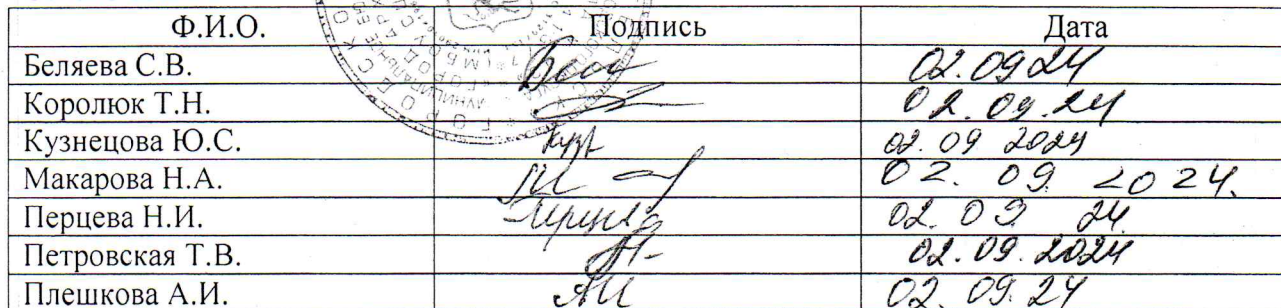 Ф.И.О. Подпись Дата
Беляева С.В. 02.09.24
Королюк Т.Н. 02.09.24
Кузнецова Ю.С. 02.09 2024
Макарова Н.А. 02. 09. 2024.
Перцева Н.И. 02.09 24.
Петровская Т.В. 02.09.2024
Плешкова А.И. 02.09.24